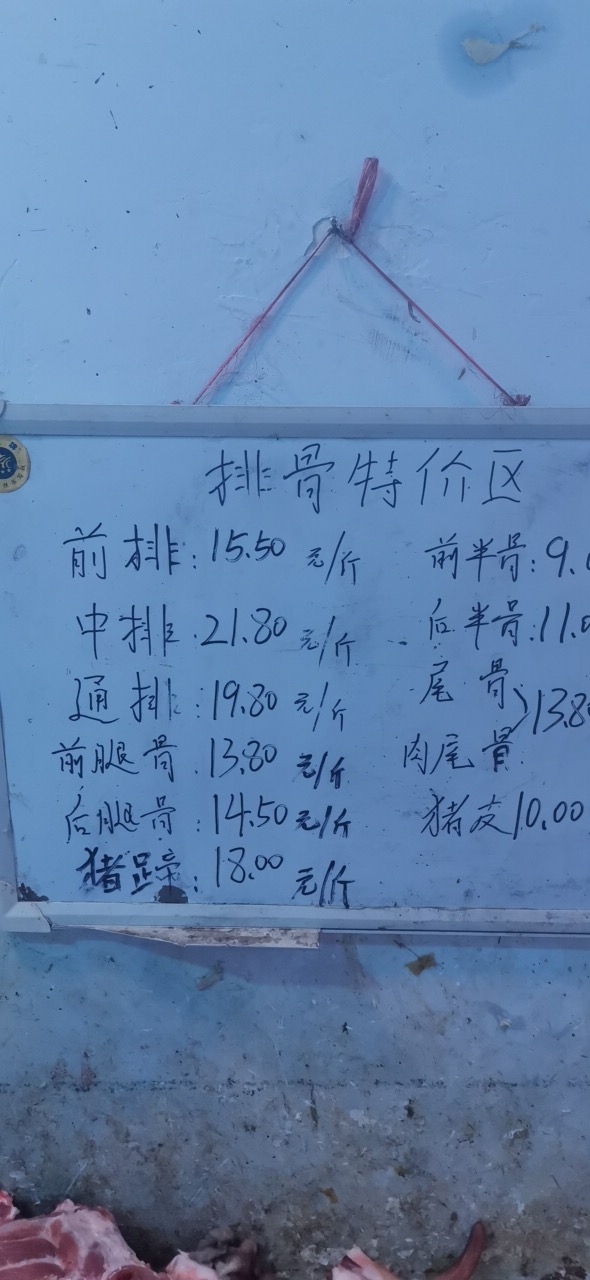 排骨特价区
前排:15.50 元/斤
中排.21.80 元/斤
通排:19.80 元/斤
前腿骨.13.80 元/斤
后腿骨:14.50 元/斤
猪蹄:18.00 元/斤
前半骨:9.
后半骨:11.0
尾骨
肉尾骨 13.80
猪皮10.00